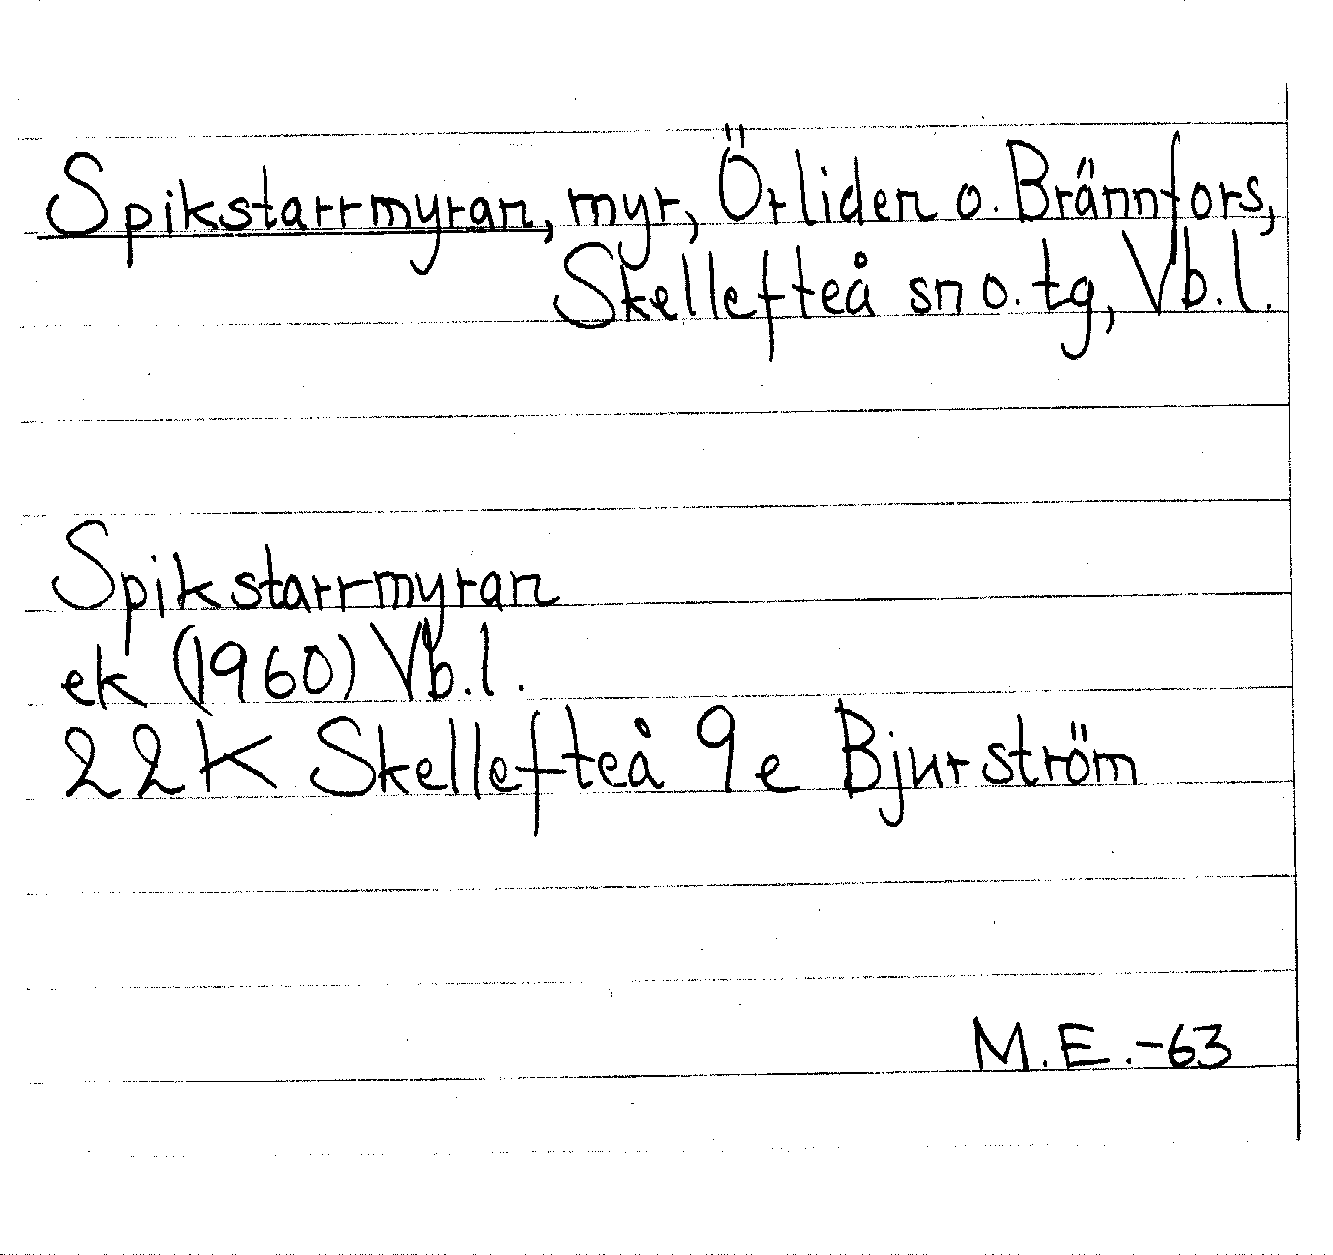 Spikstarrmyran, myr, Örliden o. Brännfors,
Skellefteå sn o. tg, Vb.l.
Spikstarrmyran
ek (1960) Vb.l.
22K Skellefteå 9e Bjurström
M.E.-63